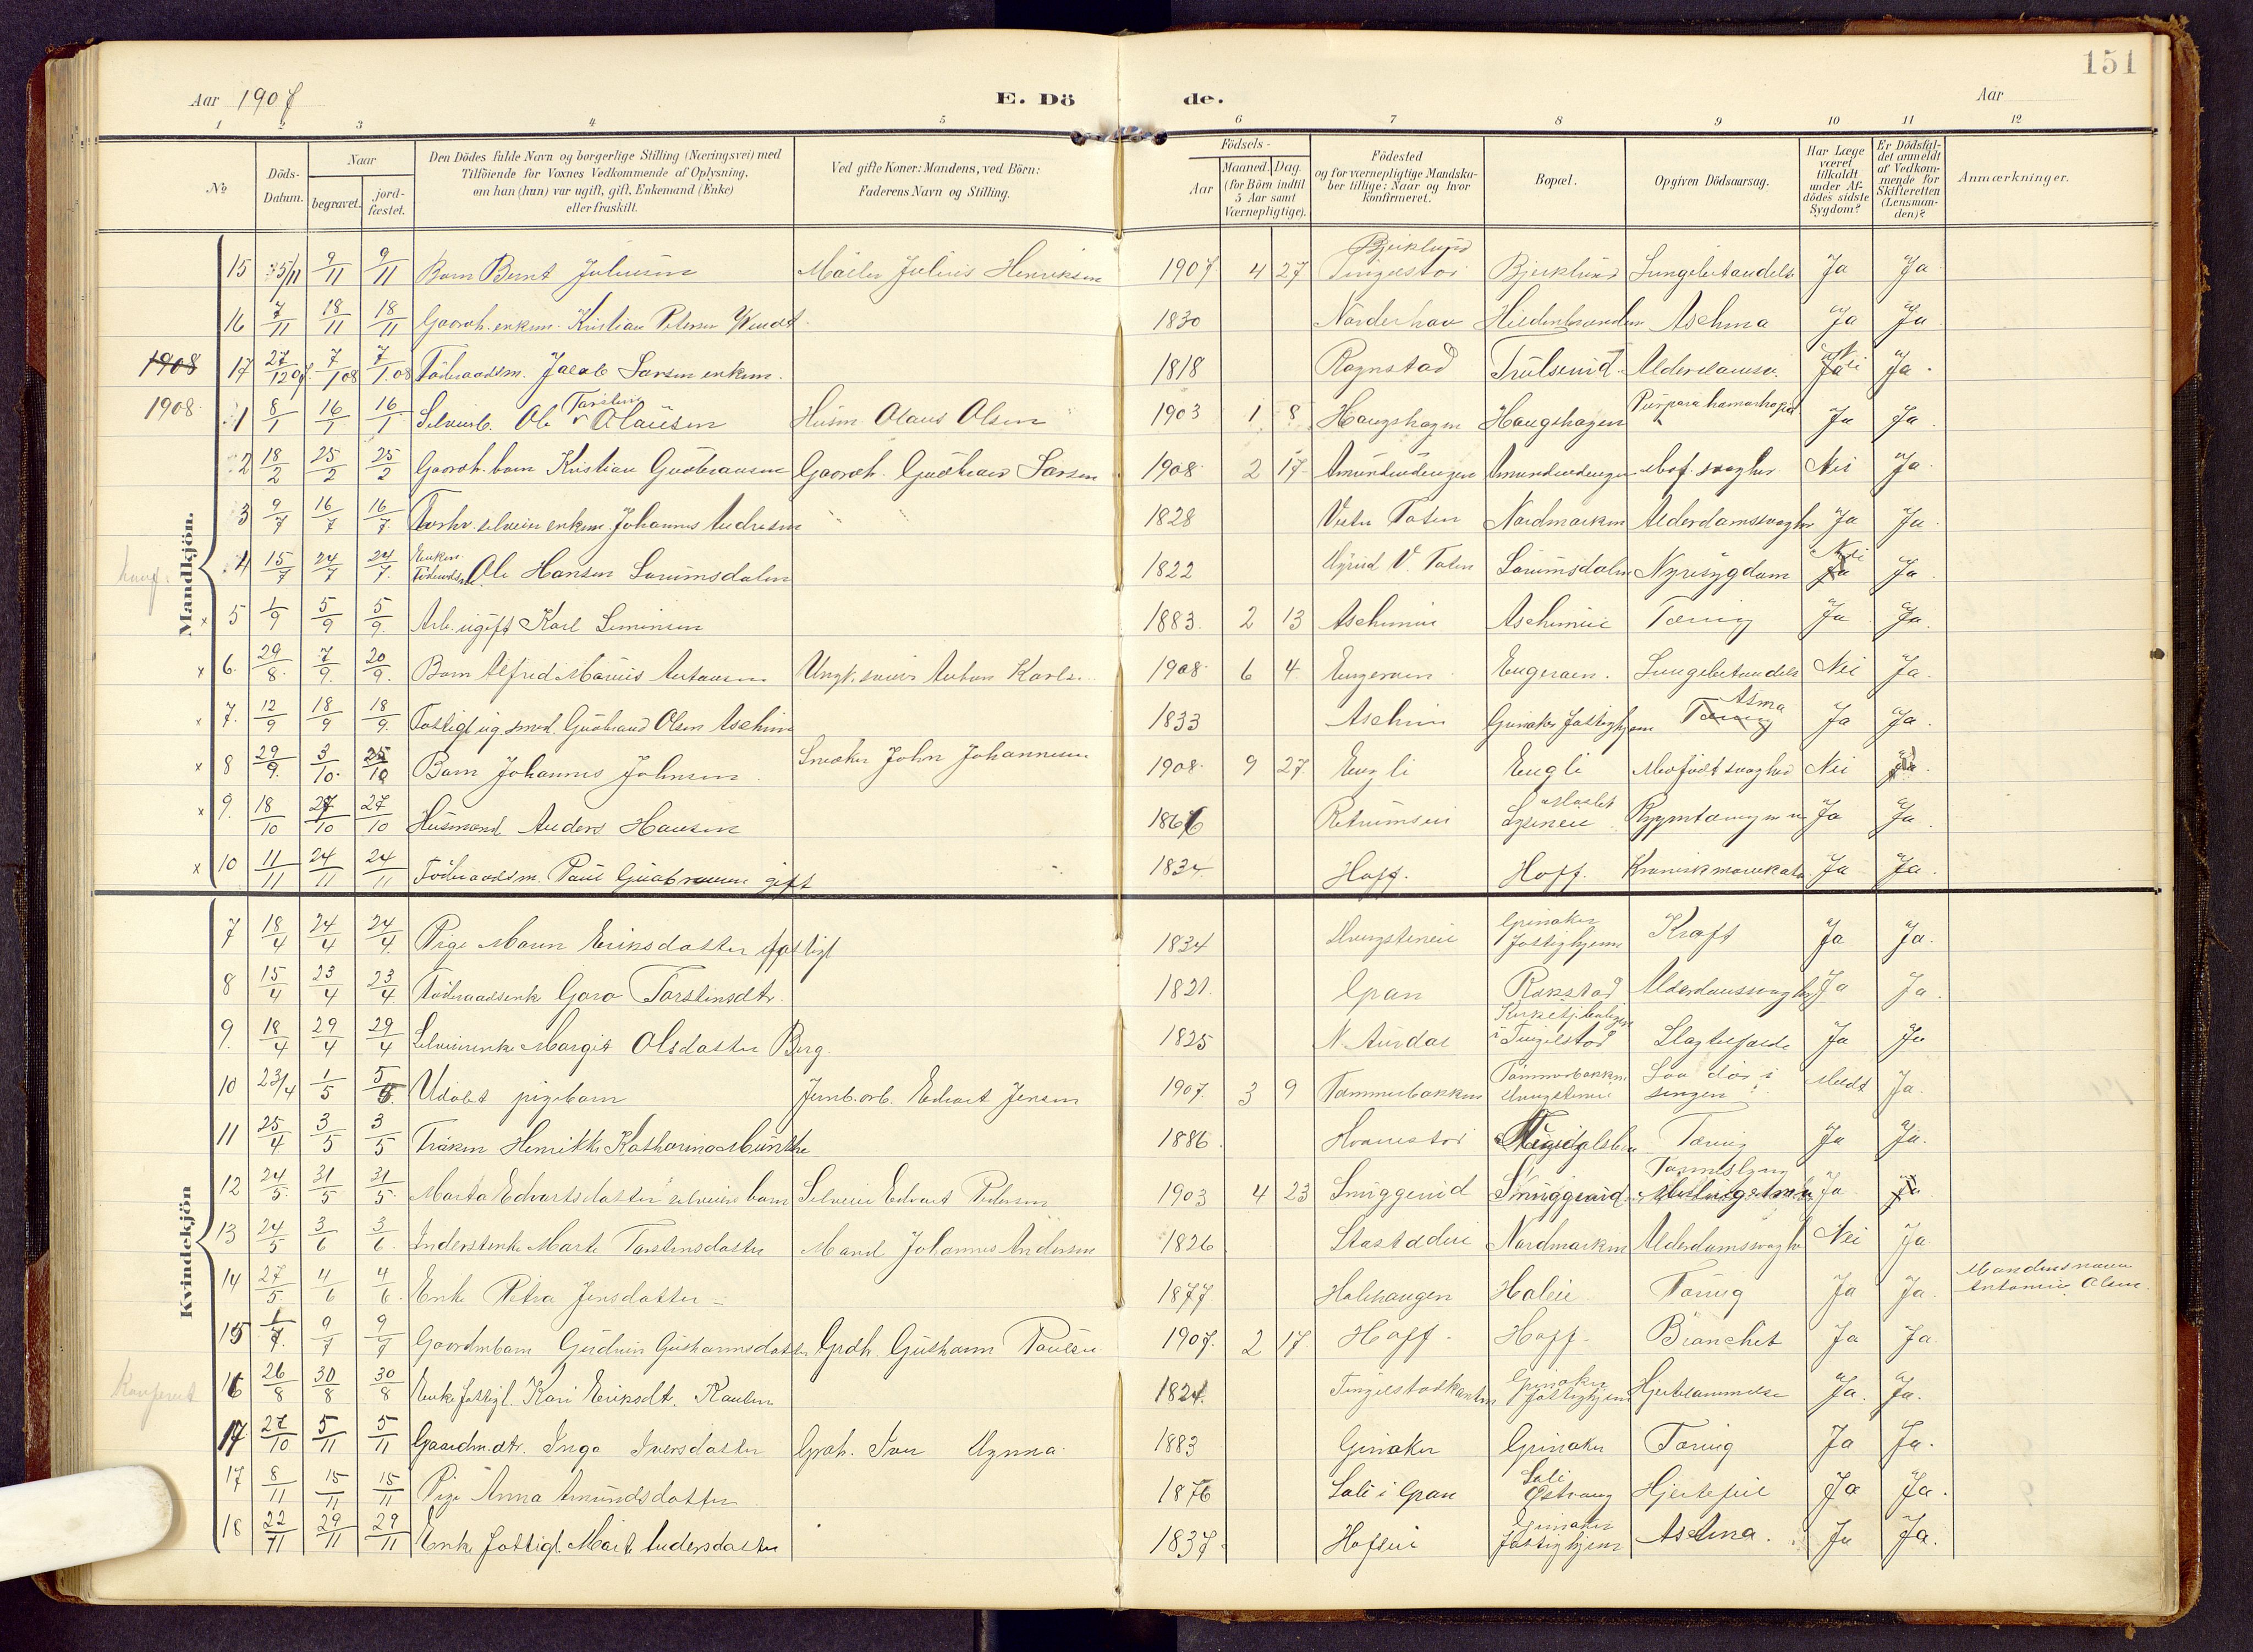 151
Aar 1907 E. Döde. Aar
1 2 3 4 5 6 7 8 9 10 11 12
No
Döds-Datum.
Naar
begravet.
jord-fæstet.
Den Dödes fulde Navn og borgerlige Stilling (Næringsvei) med
Tilföiende for Voxnes Vedkommende af Oplysning,
om han (hun) var ugift, gift, Enkemand (Enke)
eller fraskilt.
Ved gifte Koner: Mandens, ved Börn:
Faderens Navn og Stilling.
Födsels-
Aar
Maaned. Dag.
(for Börn indtil
5 Aar samt
Værnepligtige).
Födested
og for værnepligtige Mandska-
ber tillige: Naar og hvor
konfirmeret.
Bopæl.
Opgiven Dödsaarsag.
Har Læge
været
tilkaldt
under Af-
dödes sidste
Sygdom?
Er Dödsfal-
det anmeldt
af Vedkom-
mende for
Skifteretten
(Lensman-
den)?
Anmærkninger.
Mandkjön.
15 5/11 9/11 9/11 Barn Bernt Juliussen Maeler Julius Henriksen 1907 4 27 Bjerklund Tingelstad Bjerklund Lungebetændelse Ja Ja
16 7/11 18/11 18/11 Gaardb. enkem. Kristian Petersen 1830 Norderhov Aschma Ja Ja
1908 17 27/12 07 7/1 08 7/1 08 Föderaadsm. Jacob Larsen enkem. 1818 Rognstad Trulserud Nei Ja
1908 1 8/1 16/1 16/1 Selveierb. Ole Torsten Olausen Husm Olaus Olsen 1903 1 8 Haugshagen Haugshagen Ja Ja
2 18/2 25/2 25/2 Gaardb. barn Kristian Gudbrandsen Gaardb. Gudbrand Larsen 1908 2 17 Amundendengen Amundendengen Nei Ja
3 9/7 16/7 16/7 Johannes Andresen 1828 Vestre Toten Nordmarken Alderdomssvaghed Ja Ja
4 15/7 24/7 24/7 Enkem. Föderaadsm. Ole Hansen Sorumsdalen 1822 V. Toten Sorumsdalen Nyresygdom Nei Ja
x 5 1/9 5/9 5/9 Arb. ugift Karl 1883 2 13 Aschimeie Aschimeie Tæring Ja Ja
x 6 29/8 7/9 20/9 Barn Alfred Marius Antonsen Ungk. Anton Karls. 1908 6 4 Engeraen Engeraen Lungebetændelse Nei Ja
x 7 12/9 18/9 18/9 Fattigl. ug. smed. Gudbrand Olsen Aschim 1833 Aschim Grinaker Fattighjem Asma Ja Ja
x 8 29/9 3/10 25/10 Barn Johannes Johnsen Snedker John Johannesen 1908 9 27 Engli Engli Medfødt svaghed Nei Ja
x 9 18/10 27/10 27/10 Husmand Anders Hansen 1866 Ja Ja
x 10 11/11 24/11 24/11 Föderaadsm. Paul Gudbrandsen gift 1834 Hoff. Hoff. Ja Ja
Kvindekjön
7 18/4 24/4 24/4 Pige Maren Eriksdatter fattigl 1834 Grinaker Fattighjem Kræft Ja Ja
8 15/4 23/4 23/4 Föderaadsenk Goro Torstensdtr. 1821 Gran Rækstad Alderdomssvaghed Ja Ja
9 18/4 29/4 29/4 Selveierenke Margit Olsdatter Berg 1825 N. Aurdal i Tingelstad Slagtilfælde Ja Ja
10 23/4 1/5 5/5 Udöbt pigebarn Jernb.arb. Edvart Jensen 1907 3 9 Tømmerbakken Tømmerbakken Laa död i sengen Ja
11 25/4 3/5 3/5 Fröken Henrikke Katharina Munthe 1886 Hvamstad Tæring Ja Ja
12 24/5 31/5 31/5 Marta Edvartsdatter selveier barn Selveier Edvart Pedersen 1903 4 23 Smuggerud Smuggerud Tarmslyng Ja Ja
13 24/5 3/6 3/6 Inderstenke Marte Torstensdatter Mand Johannes Andersen 1826 Nordmarken Alderdomssvaghed Nei Ja
14 27/5 4/6 4/6 Enke Petra Jensdatter 1877 Halehaugen Haleie Tæring Ja Ja Mandens navn Antonius Olsen
15 1/7 9/7 9/7 Gaardmbarn Gudrun Gushavnsdatter Grdb. Paulsen 1907 2 17 Hoff Hoff Bronchit Ja Ja
16 26/8 30/8 30/8 Enke Fattigl. Kari Eriksdt. 1824 Grinaker Fattighjem Hjertelammelse Ja Ja
17 27/10 5/11 5/11 Gaardm.dtr. Inga Iversdatter Grdb. Iver 1883 Grinaker Grinaker Tæring Ja Ja
17 8/11 15/11 15/11 Pige Anna Amundsdatter 1876 Sali i Gran Hjertefeil Ja Ja
18 22/11 29/11 29/11 Enke fattigl. Marte Andersdatter 1837 Grinaker Fattighjem Aschma Ja Ja